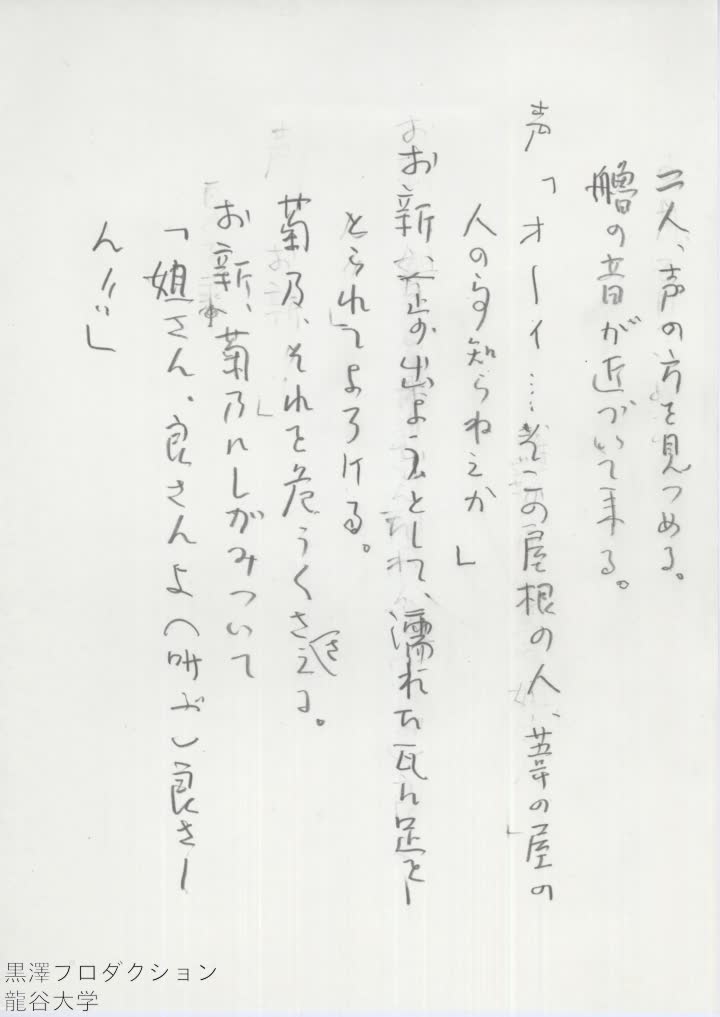 二人、声の方を見つめる。
艪の音が近づいて来る。
声「オーイ……そこの屋根の人、葦の屋の
人の事知らねえか」
お新、立ち出ようとして、濡れた瓦に足を
とられてよろける。
菊乃、それを危うくささえる。
お新、菊乃にしがみついて
「姐さん、良さんよ(叫ぶ)良さー
ん!!」
黒澤プロダクション
龍谷大学